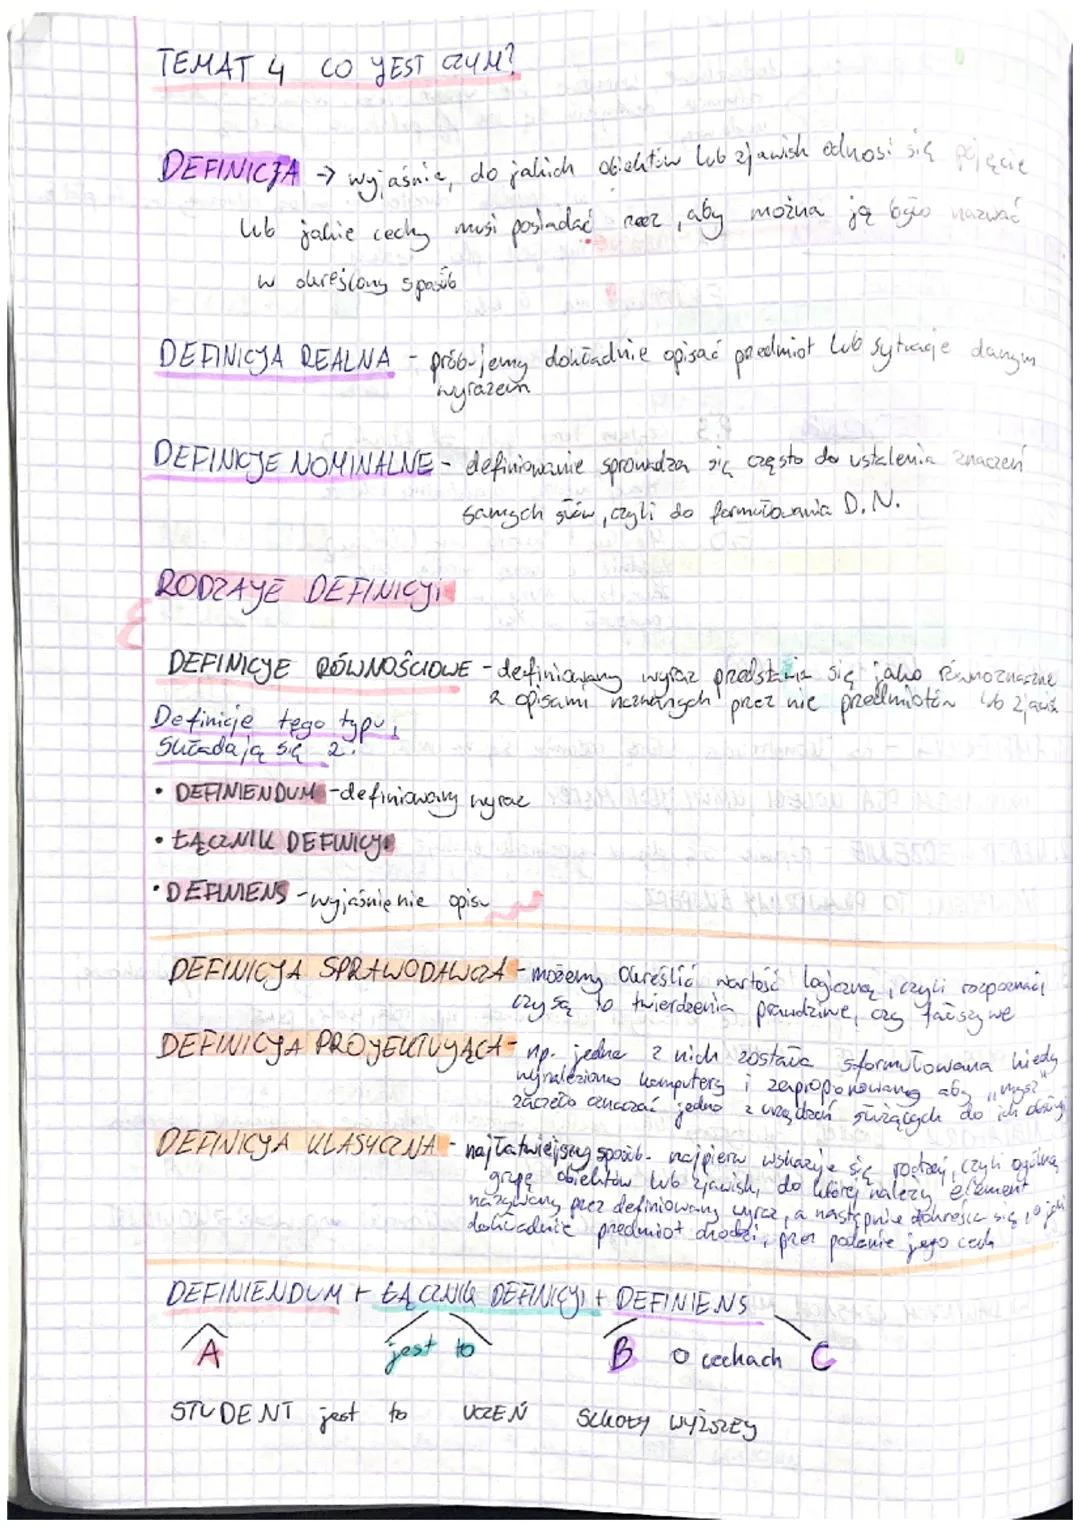 TEMAT 4 CO JEST CZYM?
DEFINICJA → wyjaśnia, do jakich obiektów lub zjawisk odnosi się pojęcie
lub jakie cechy musi posiadać rzecz, aby można ją było nazwać
w określony sposób
DEFINICJA REALNA - próbujemy dokładnie opisać przedmiot lub sytuacje danym
wyrazem
DEFINICJE NOMINALNE - definiowanie sprowadza się często do ustalenia znaczeń
samych słów, czyli do formułowania D.N.
RODZAJE DEFINICJI
DEFINICJE RÓWNOŚCIOWE - definiowany wyraz przedstawia się jako równoznaczne
z opisami nazwanych przez nie przedmiotów lub zjawisk
Definicje tego typu,
składają się z:
• DEFINIENDUM - definiowany wyraz
• ŁĄCZNIK DEFINICJI
• DEFINIENS - wyjaśnienie opisu
DEFINICJA SPRAWODAWCZA - możemy określić wartość logiczną, czyli rozpoznać
czy są to twierdzenia prawdziwe, czy fałszywe
DEFINICJA PROJEKTUJĄCA - np. jedna z nich została sformułowana kiedy
wynaleziono komputery i zaproponowano aby "mysz"
zaczęło oznaczać jedno z urządzeń służących do ich obsługi
DEFINICJA KLASYCZNA - najłatwiejszy sposób - najpierw wskazuje się rodzaj, czyli ogólną
grupę obiektów lub zjawisk, do której należy element
nazywany przez definiowany wyraz, a następnie dokreśla się, o jaki
dokładnie przedmiot chodzi, przez podanie jego cech
DEFINIENDUM + ŁĄCZNIK DEFINICJI + DEFINIENS
A jest to B o cechach C
STUDENT jest to UCZEŃ SZKOŁY WYŻSZEJ